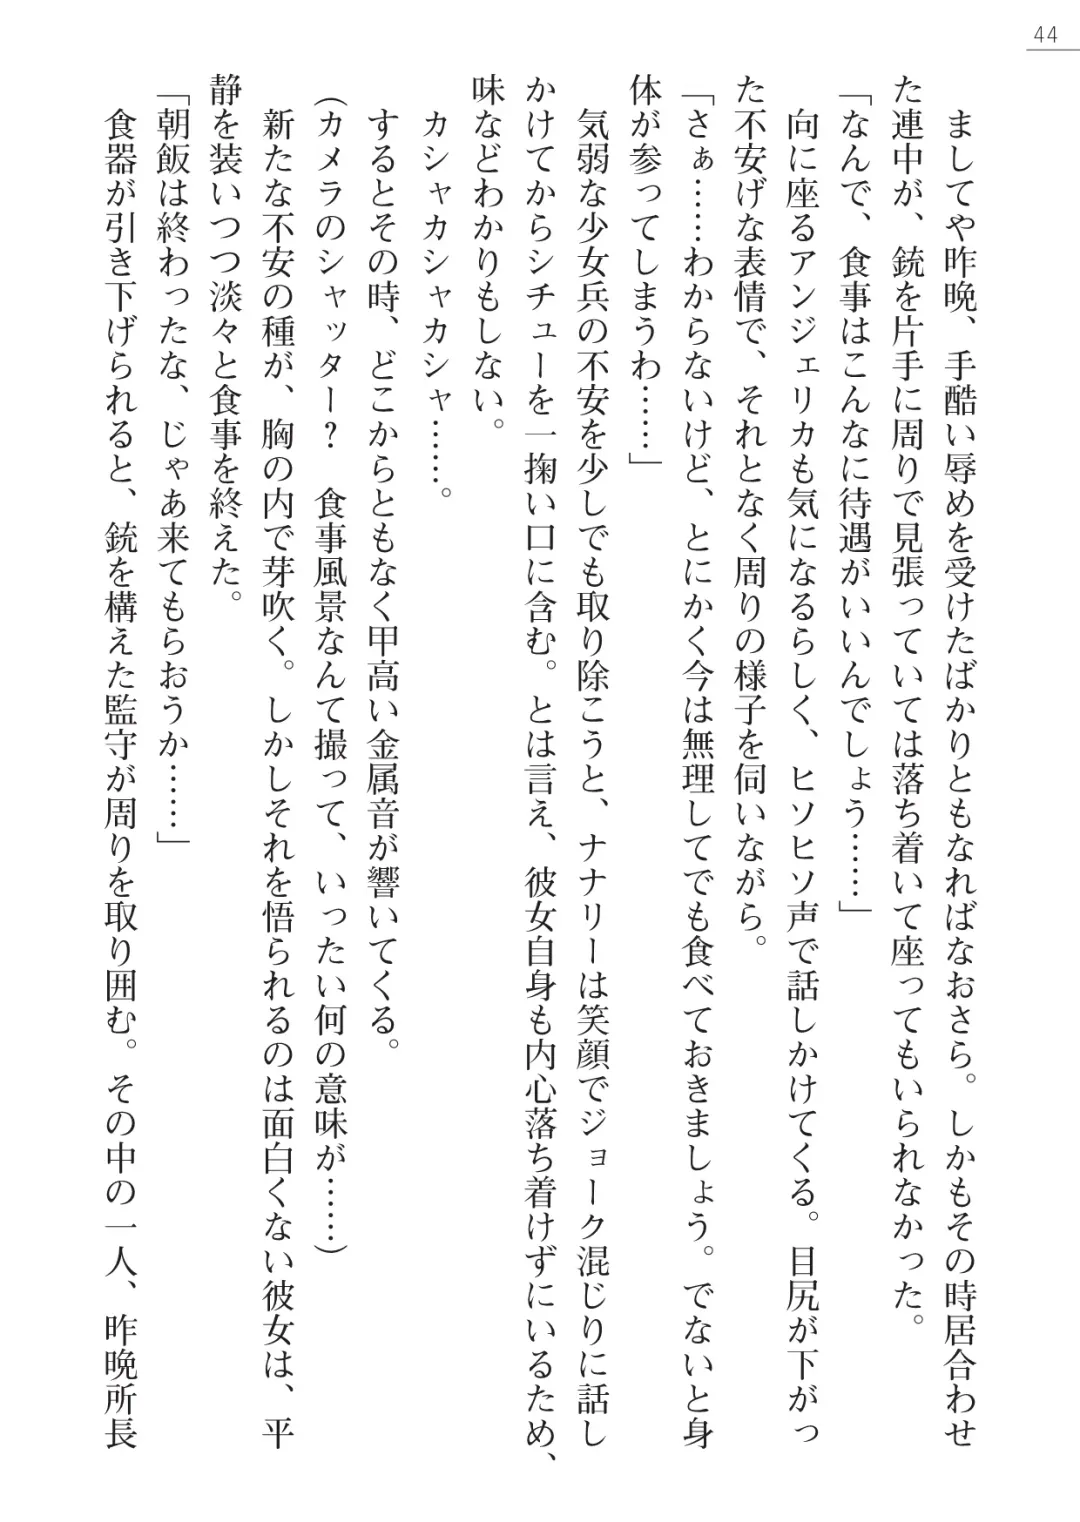 44
ましてや昨晩、手酷い辱めを受けたばかりともなればなおさら。しかもその時居合わせ
た連中が、銃を片手に周りで見張っていては落ち着いて座ってもいられなかった。
「なんで、食事はこんなに待遇がいいんでしょう……」
向に座るアンジェリカも気になるらしく、ヒソヒソ声で話しかけてくる。目尻が下がっ
た不安げな表情で、それとなく周りの様子を伺いながら。
「さぁ……わからないけど、とにかく今は無理してでも食べておきましょう。でないと身
体が参ってしまうわ……」
気弱な少女兵の不安を少しでも取り除こうと、ナナリーは笑顔でジョーク混じりに話し
かけてからシチューを一掬い口に含む。とは言え、彼女自身も内心落ち着けずにいるため、
味などわかりもしない。
カシャカシャカシャ……。
するとその時、どこからともなく甲高い金属音が響いてくる。
(カメラのシャッター?　食事風景なんて撮って、いったい何の意味が……)
新たな不安の種が、胸の内で芽吹く。しかしそれを悟られるのは面白くない彼女は、平
静を装いつつ淡々と食事を終えた。
「朝飯は終わったな、じゃあ来てもらおうか……」
食器が引き下げられると、銃を構えた監守が周りを取り囲む。その中の一人、昨晩所長